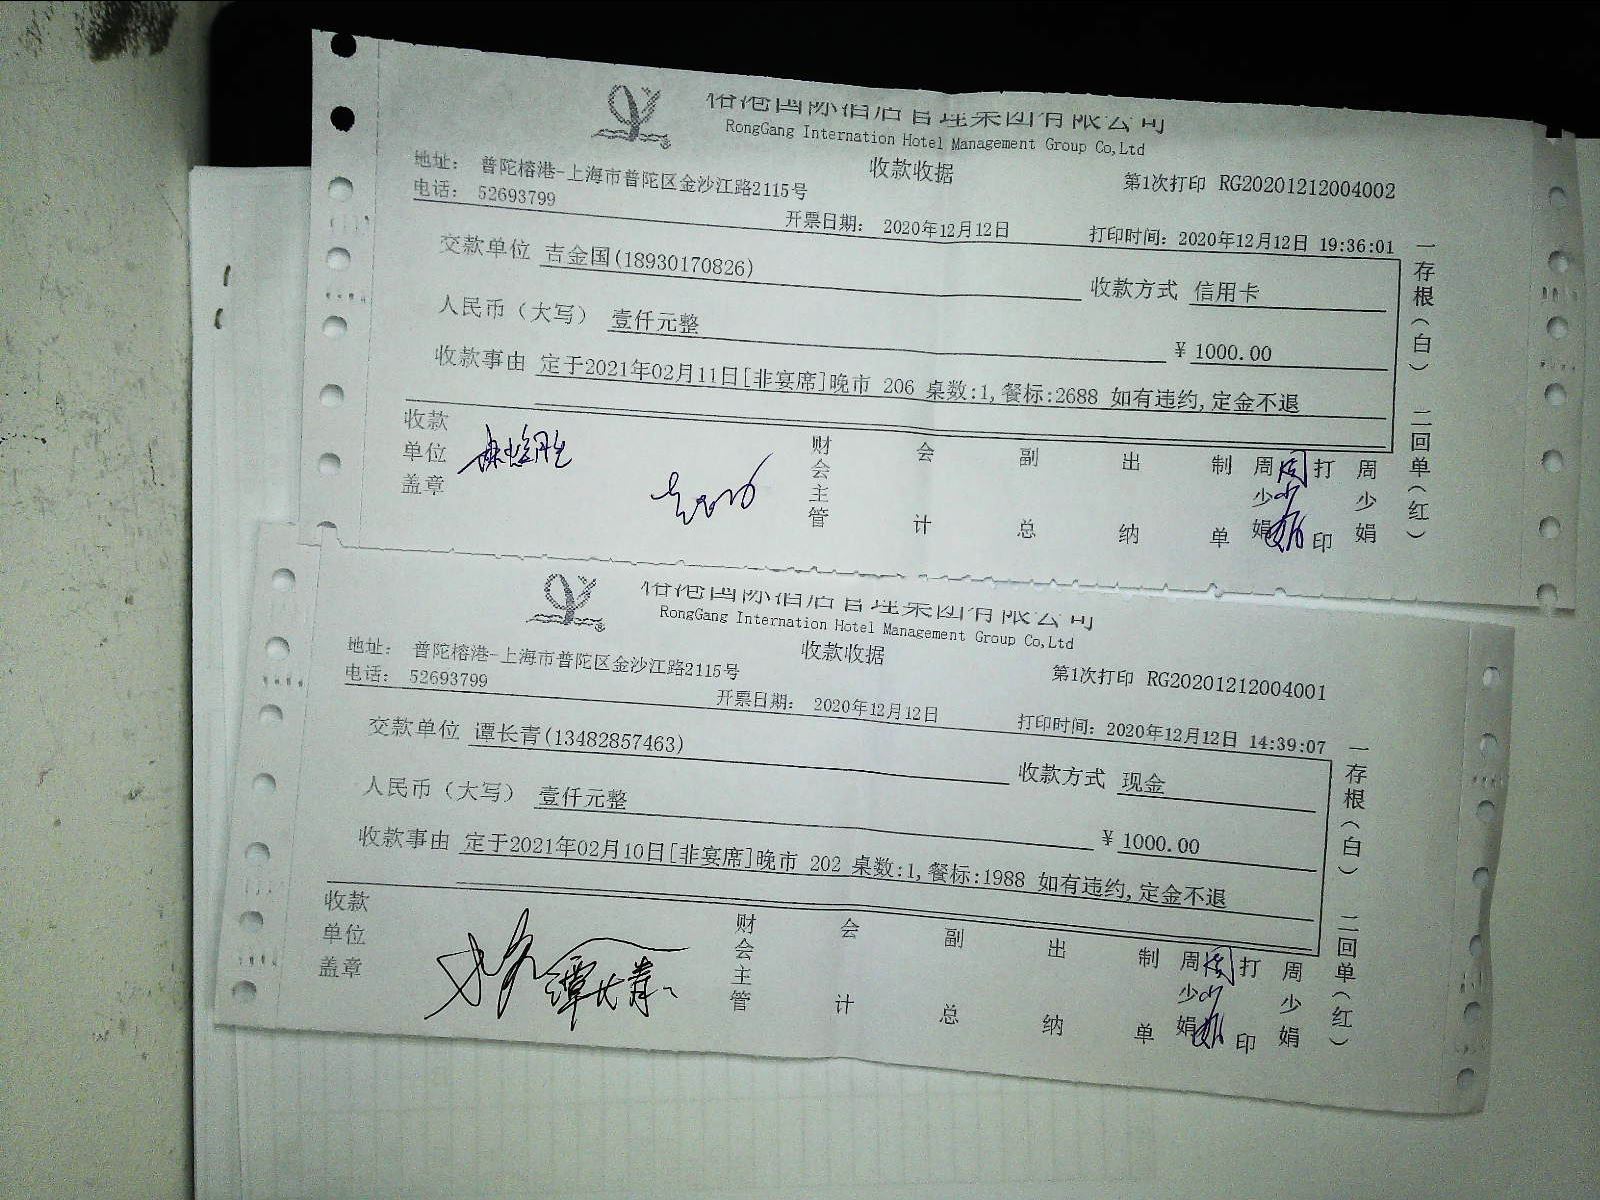 榕港国际酒店管理集团有限公司
RongGang Internation Hotel Management Group Co,Ltd
收款收据
地址： 普陀榕港-上海市普陀区金沙江路2115号
第1次打印 RG20201212004002
电话： 52693799
开票日期： 2020年12月12日
打印时间：2020年12月12日 19:36:01
交款单位 吉金国(18930170826)
收款方式 信用卡
人民币（大写） 壹仟元整
¥ 1000.00
收款事由 定于2021年02月11日[非宴席]晚市 206 桌数:1,餐标:2688 如有违约,定金不退
一存根（白） 二回单（红）
收款单位盖章
财会主管
会计
副总
出纳
制单
周少娟
周少娟
打印
周少娟
榕港国际酒店管理集团有限公司
RongGang Internation Hotel Management Group Co,Ltd
收款收据
地址： 普陀榕港-上海市普陀区金沙江路2115号
第1次打印 RG20201212004001
电话： 52693799
开票日期： 2020年12月12日
打印时间：2020年12月12日 14:39:07
交款单位 谭长青(13482857463)
收款方式 现金
人民币（大写） 壹仟元整
¥ 1000.00
收款事由 定于2021年02月10日[非宴席]晚市 202 桌数:1,餐标:1988 如有违约,定金不退
一存根（白） 二回单（红）
收款单位盖章
谭长青
财会主管
会计
副总
出纳
制单
周少娟
周少娟
打印
周少娟